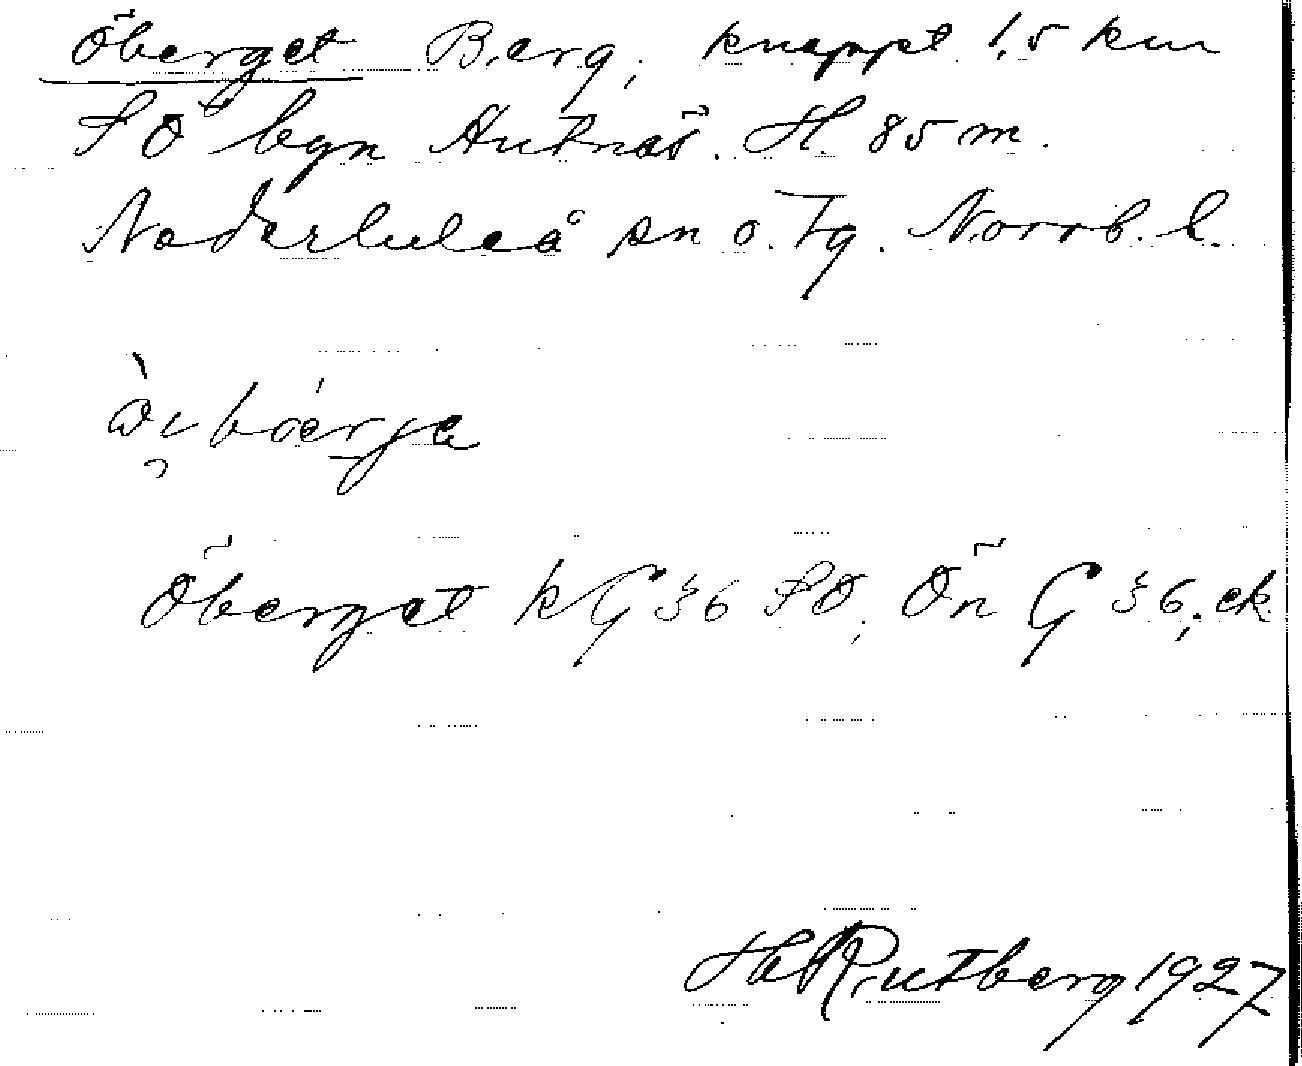 Öberget Berg, knappt 1,5 km
SO byn Antnäs. H. 85 m.
Nederluleå sn o. Tg. Norrb. l.
Öberget k G 36 SO, Ön G 36, ek.
H Rutberg 1927